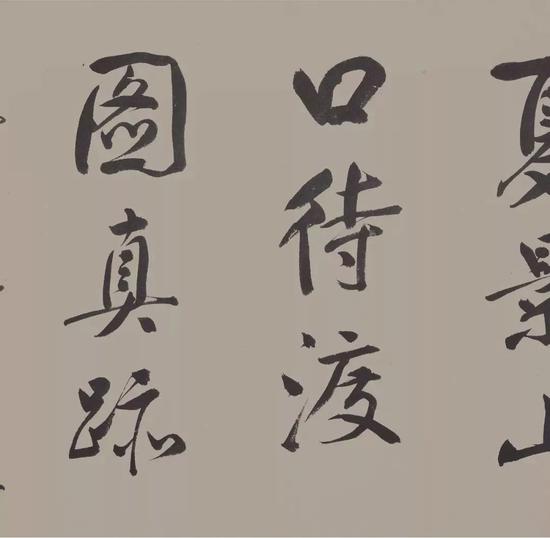 夏景山
口待渡
圖真跡